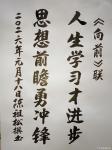 《向前》联
人生学习才进步
思想前瞻勇冲锋
二〇二六年元月十八日陈祖松撰书